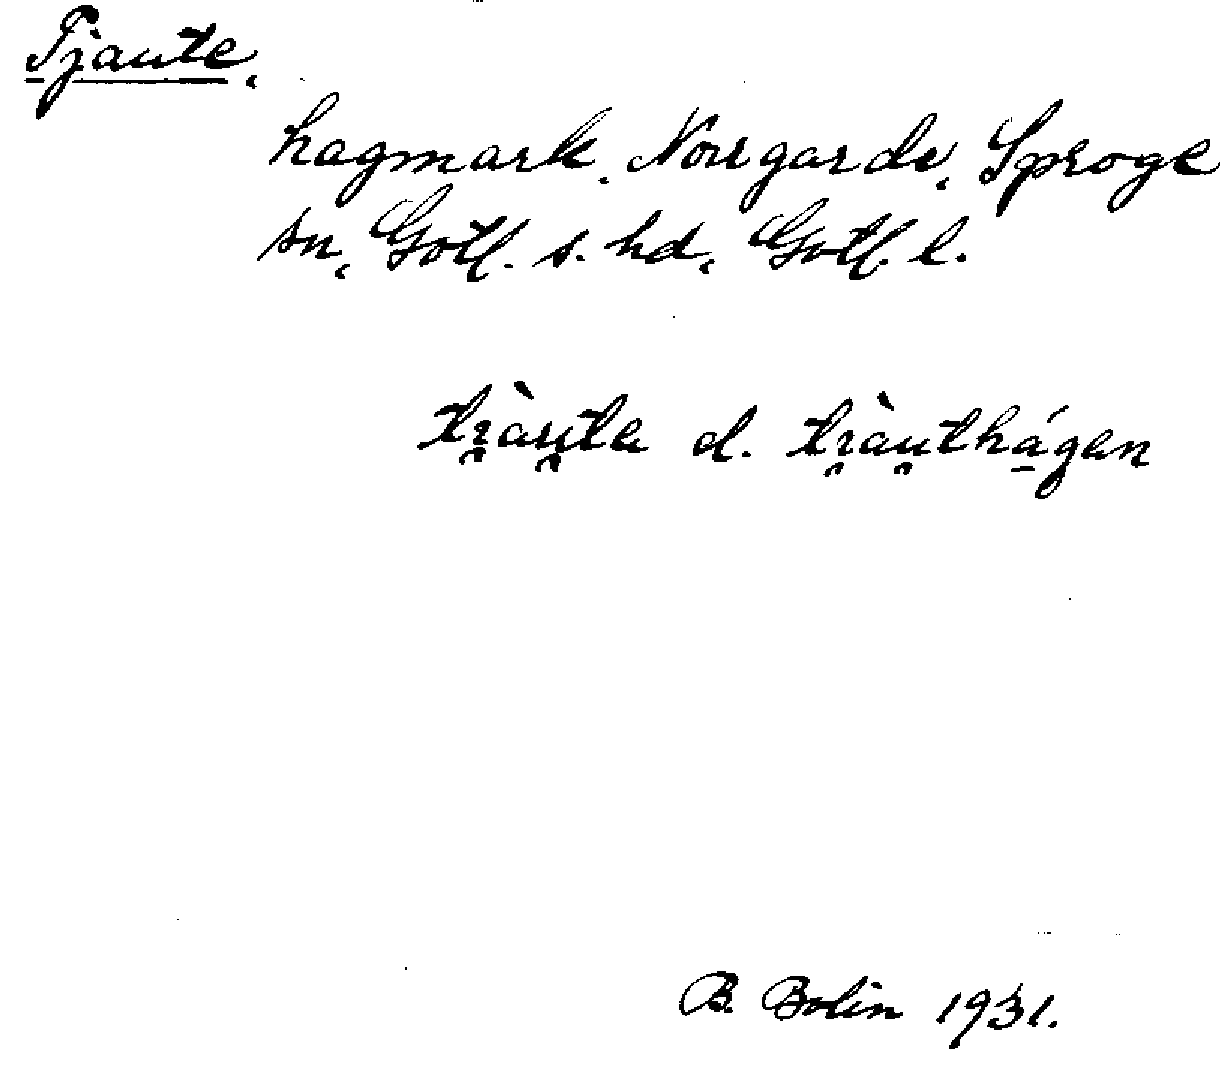 Tjaute,
hagmark, Norrgarde, Sproge
sn, Gotl. s. hd, Gotl. l.
ti̯àu̯te d. ti̯àu̯thá̱gen
B. Bolin 1931.